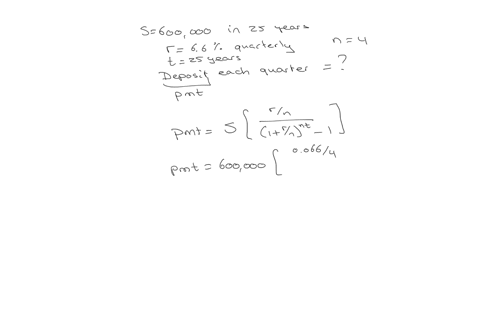 S=600,000 in 25 years
r = 6.6% quarterly n=4
t = 25 years
Deposit each quarter = ?
pmt
pmt = S [ r/n / (1+r/n)^nt - 1 ]
pmt = 600,000 [ 0.066/4